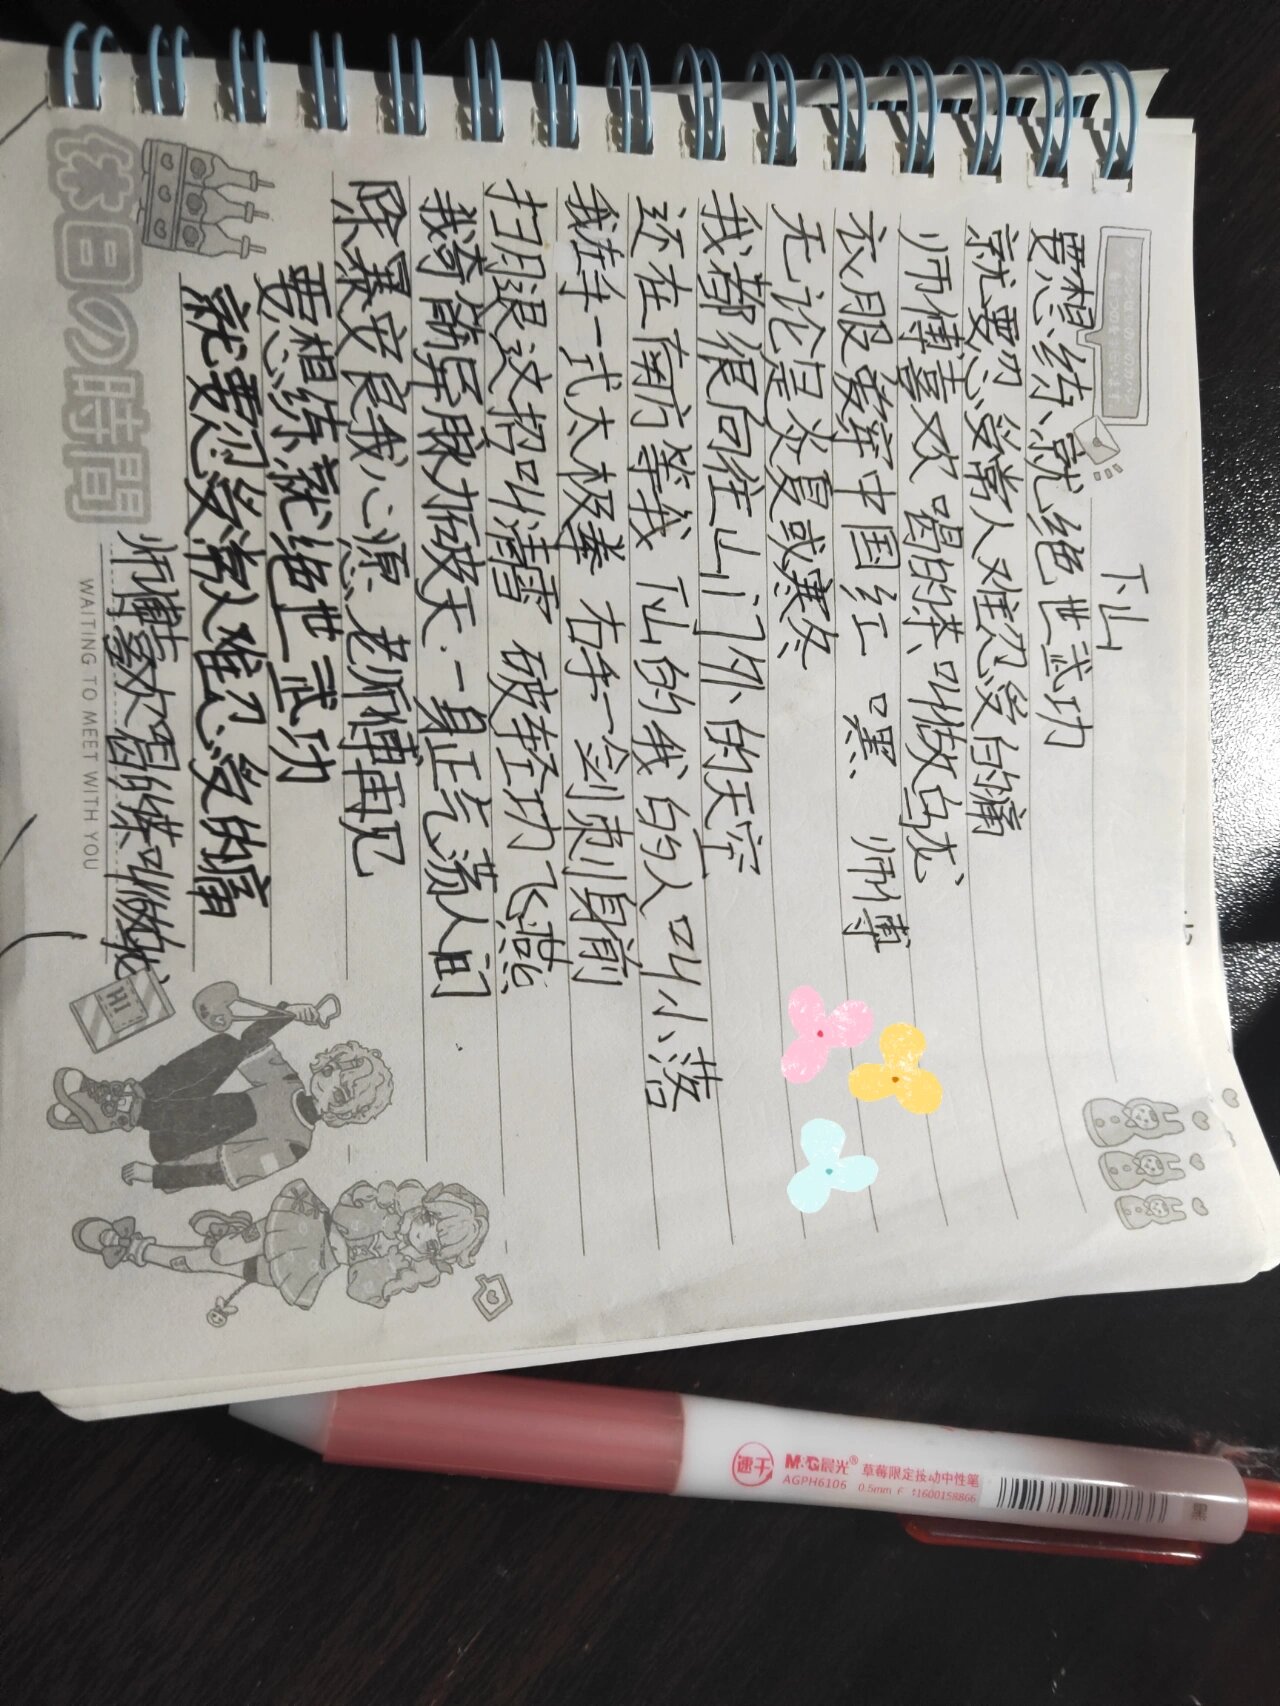 下山
要想练就绝世武功
就要忍受常人难忍受的痛
师傅喜欢喝的茶叫做乌龙
衣服爱穿中国红 嘿 师傅
无论是炎夏或寒冬
我都很向往山门外的天空
还在南方等我 下山的我的人叫小落
我左手一式太极拳 右手一剑刺身前
扫腿这招叫清雪 破轻功飞燕
我踏破天 一身正气荡人间
除暴安良我心愿 老师傅再见
要想练就绝世武功
就要忍受常人难忍受的痛
师傅喜欢喝的茶叫做
休日の時間
WAITING TO MEET WITH YOU
HI
速干 M&G晨光® 草莓限定按动中性笔
AGPH6106 0.5mm
黑